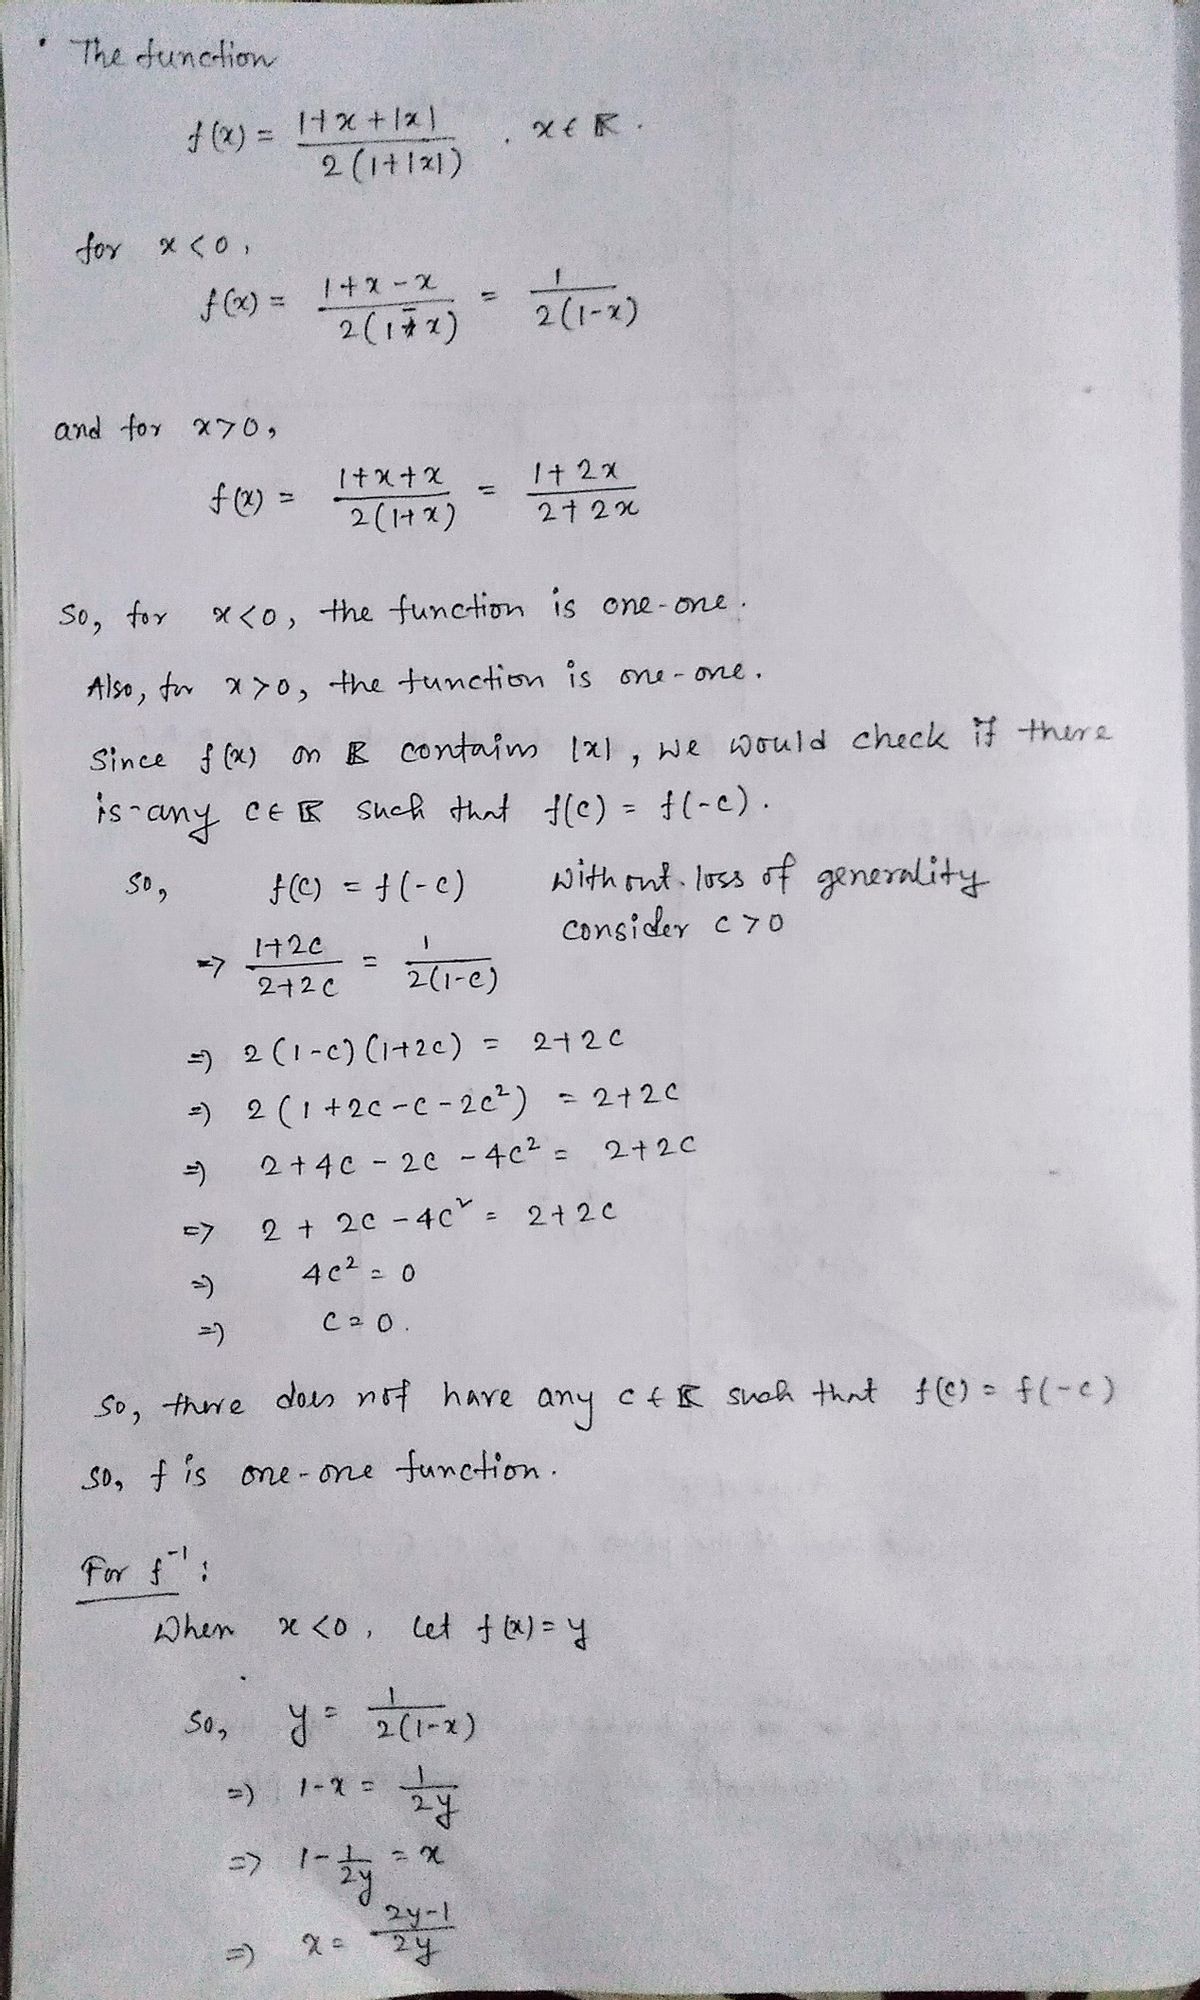 • The function
f(x) = (1+x+|x|) / (2(1+|x|)) . x ∈ ℝ.
for x < 0,
f(x) = (1+x-x) / (2(1-x)) = 1 / (2(1-x))
and for x > 0,
f(x) = (1+x+x) / (2(1+x)) = (1+2x) / (2+2x)
So, for x < 0, the function is one-one.
Also, for x > 0, the function is one-one.
Since f(x) on ℝ contains |x|, we would check if there
is any c ∈ ℝ such that f(c) = f(-c).
So, f(c) = f(-c) Without loss of generality
consider c > 0
=> (1+2c) / (2+2c) = 1 / (2(1-c))
=> 2(1-c)(1+2c) = 2+2c
=> 2(1+2c-c-2c²) = 2+2c
=> 2+4c-2c-4c² = 2+2c
=> 2+2c-4c² = 2+2c
=> 4c² = 0
=> c = 0.
So, there does not have any c ∈ ℝ such that f(c) = f(-c)
So, f is one-one function.
For f⁻¹:
When x < 0, Let f(x) = y
So, y = 1 / (2(1-x))
=> 1-x = 1/2y
=> 1 - 1/2y = x
=> x = (2y-1) / 2y